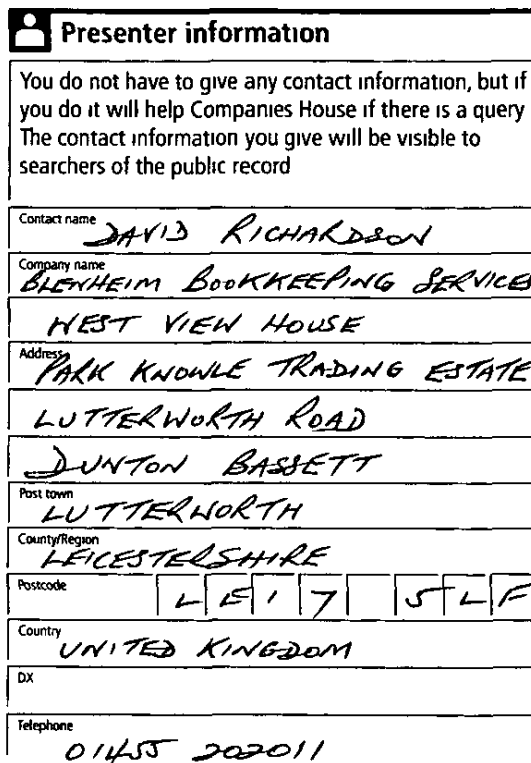 Presenter information
You do not have to give any contact information, but if
you do it will help Companies House if there is a query
The contact information you give will be visible to
searchers of the public record
Contact name
DAVID RICHARDSON
Company name
BLENHEIM BOOKKEEPING SERVICES
WEST VIEW HOUSE
Address
PARK KNOWLE TRADING ESTATE
LUTTERWORTH ROAD
DUNTON BASSETT
Post town
LUTTERWORTH
County/Region
LEICESTERSHIRE
Postcode
LE17 5LF
Country
UNITED KINGDOM
DX
Telephone
01455 202011